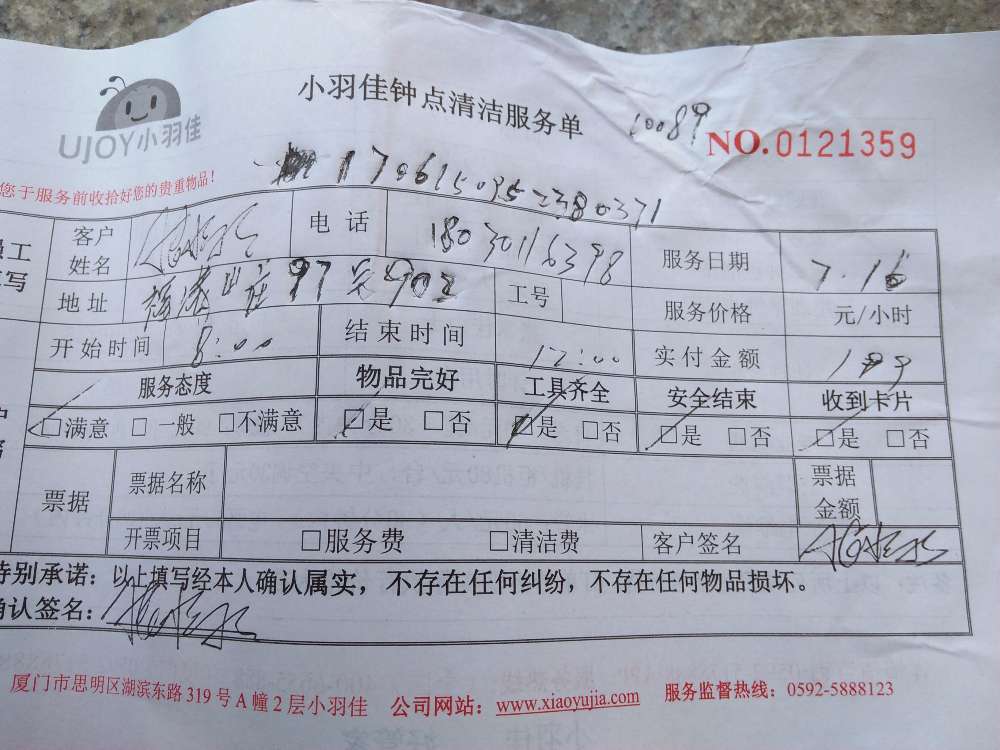 UJOY小羽佳
小羽佳钟点清洁服务单
10089
NO.0121359
您于服务前收拾好您的贵重物品！
客户姓名
电话 18030116398
服务日期 7.16
地址 97 902
工号
服务价格 元/小时
开始时间 8:00
结束时间 12:00
实付金额 199
服务态度 物品完好 工具齐全 安全结束 收到卡片
□满意 □一般 □不满意 □是 □否 □是 □否 □是 □否 □是 □否
票据
票据名称
票据金额
开票项目 □服务费 □清洁费 客户签名
特别承诺：以上填写经本人确认属实，不存在任何纠纷，不存在任何物品损坏。
确认签名：
厦门市思明区湖滨东路319号A幢2层小羽佳 公司网站：www.xiaoyujia.com 服务监督热线：0592-5888123